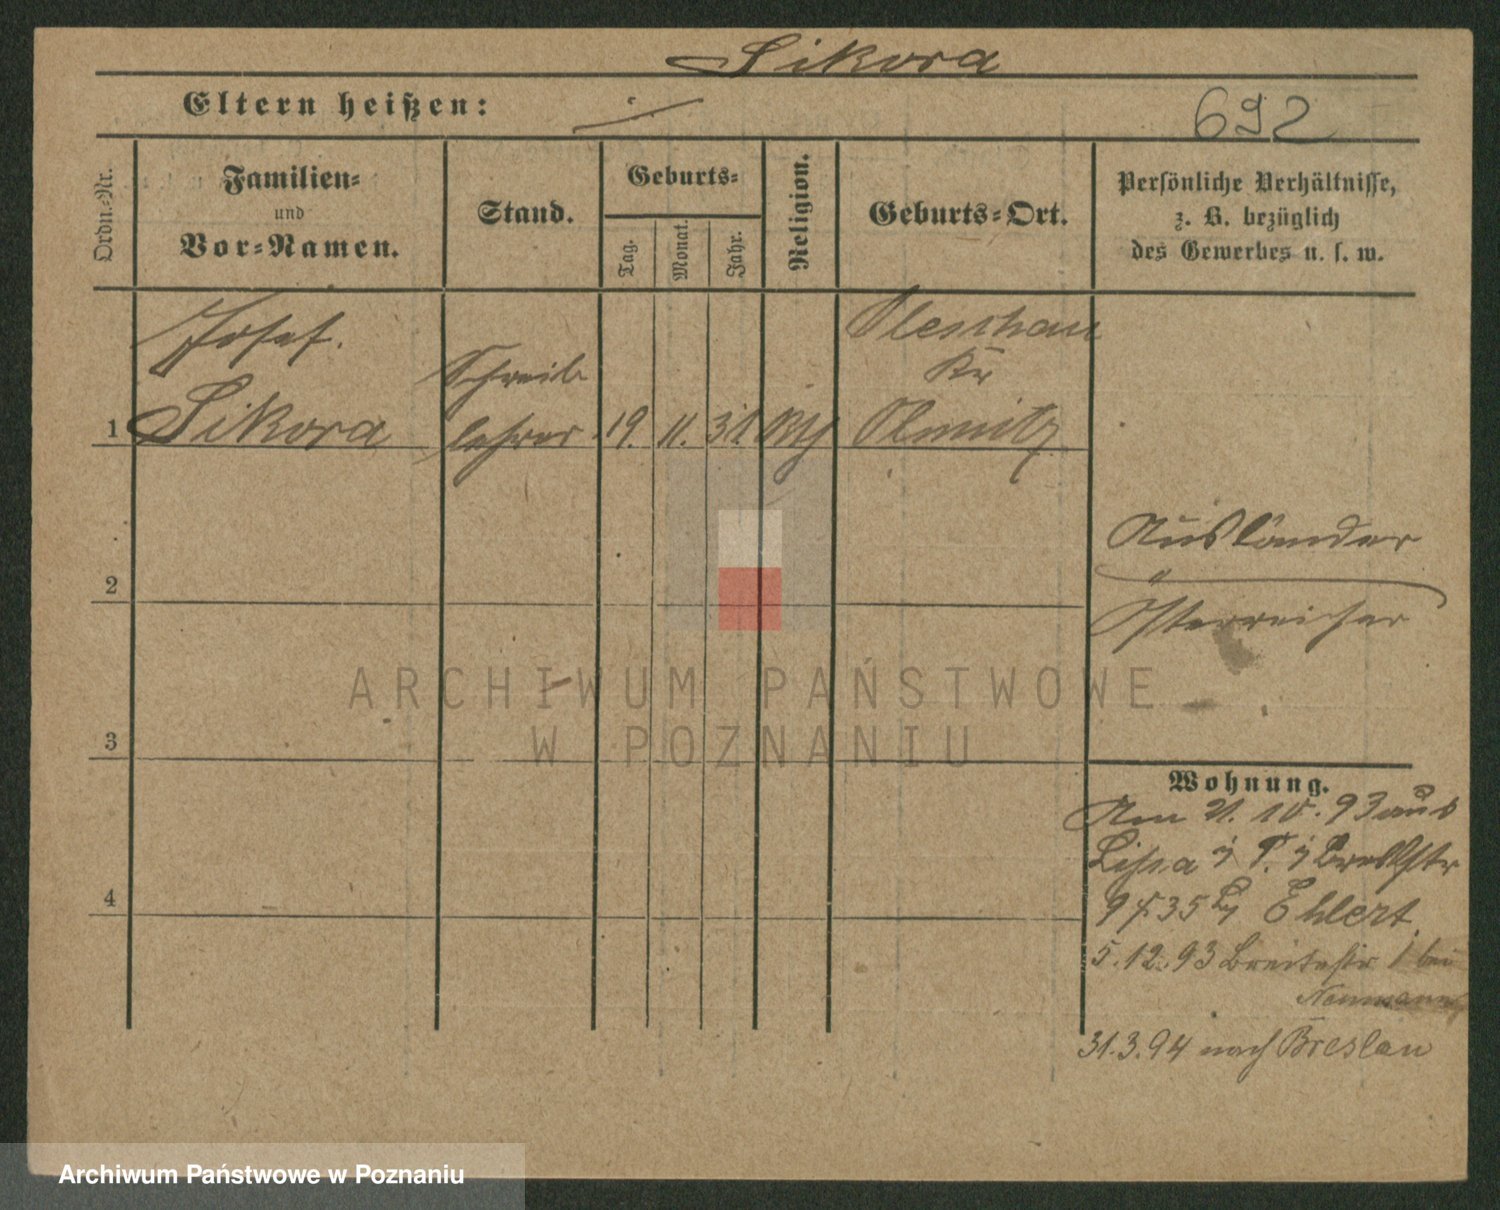 Sikora
Eltern heißen: ./.
692
Ordn.-Nr.
Familien-
und
Vor-Namen.
Stand.
Geburts-
Tag.
Monat.
Jahr.
Religion.
Geburts-Ort.
Persönliche Verhältnisse,
z. B. bezüglich
des Gewerbes u. s. w.
Josef.
Sikora
Schreib
lehrer
1
19. 11. 31.
Pleschau
Kr
Olmütz
Ausländer
Österreicher
2
3
4
Wohnung.
Am 21. 10. 93 aus
Lissa i P.
35 Ehlert
5.12.93 Breitestr 1 bei
Neumann
31.3.94 nach Breslau
ARCHIWUM PAŃSTWOWE
W POZNANIU
Archiwum Państwowe w Poznaniu